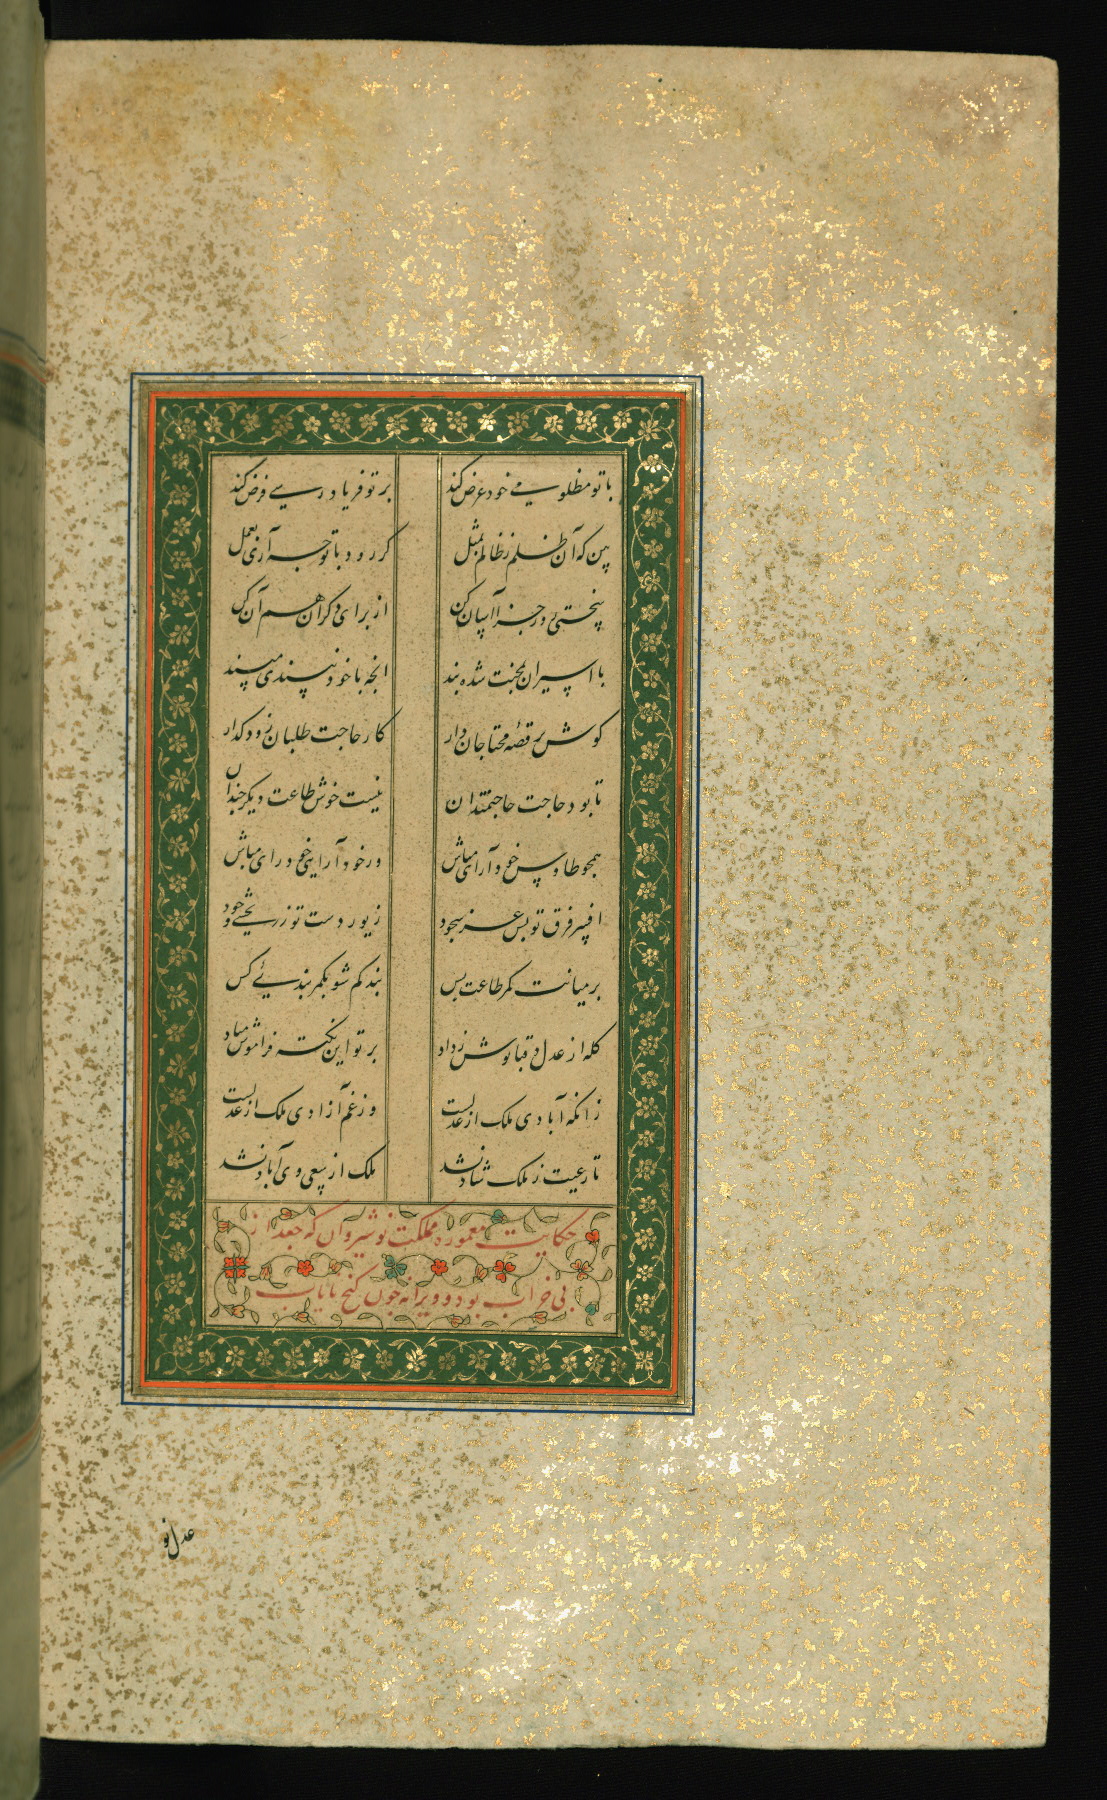 با تو مظلومی خود عرض کند بر تو فریاد رسی فرض کند
بین که آن ظلم ز ظالم بمثل کر رود با تو چه آری بعمل
از برای دکران هم آن کن
با اسیران شده بند انچه با خود نپسندی مپسند
کوش بر قصّه محتاجان دار کار حاجت طلبان زود کذار
تا بود حاجت حاجتمندان نیست خوش طاعت دیکر چندان
همچو طاوس خود آرای مباش در خود آرایی خود رای مباش
افسر فرق تو بس عز سجود زیور دست تو زر بخشی وجود
بر میانت کمر طاعت بس بند کم شو بکمر بندی کس
کله از عدل و قبا نوش ز داد بر تو این نکته فراموش مباد
زانکه آبادی ملک از عدلست وز غم آزادی ملک از عدلست
تا رعیت ز ملک شاد نشد ملک از سعی وی آباد نشد
حکایت معموره مملکت نوشیروان که جغد از
بی خراب بود و ویرانه چون کنج نایاب
عدل نو